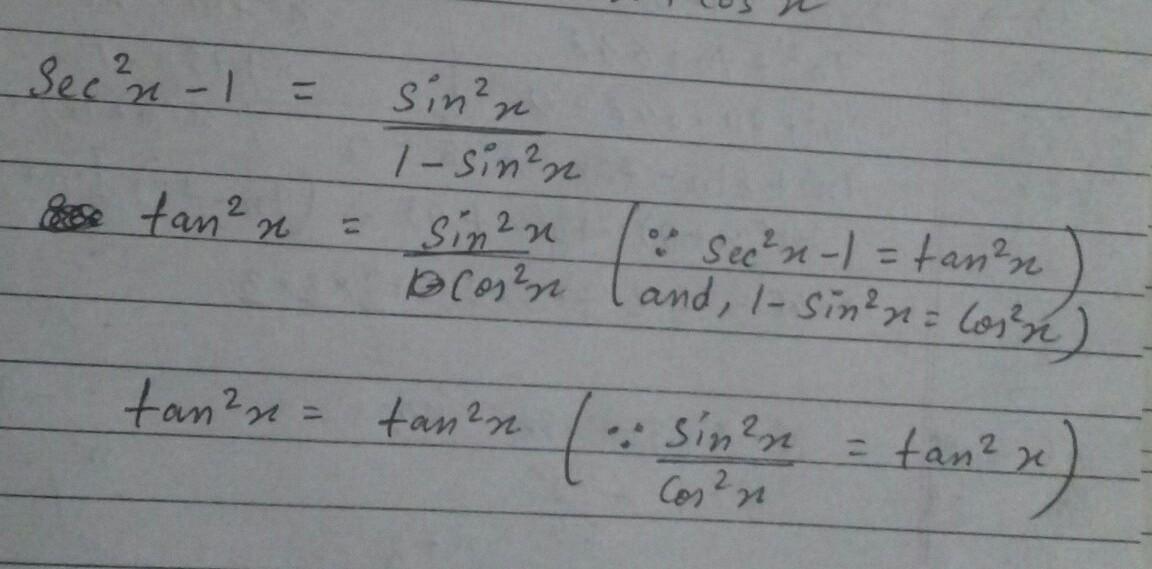 cos x
Sec²x - 1 = Sin²x / 1 - Sin²x
tan²x = Sin²x / Cos²x (∵ Sec²x - 1 = tan²x
and, 1 - Sin²x = Cos²x)
tan²x = tan²x (∵ Sin²x / Cos²x = tan²x)